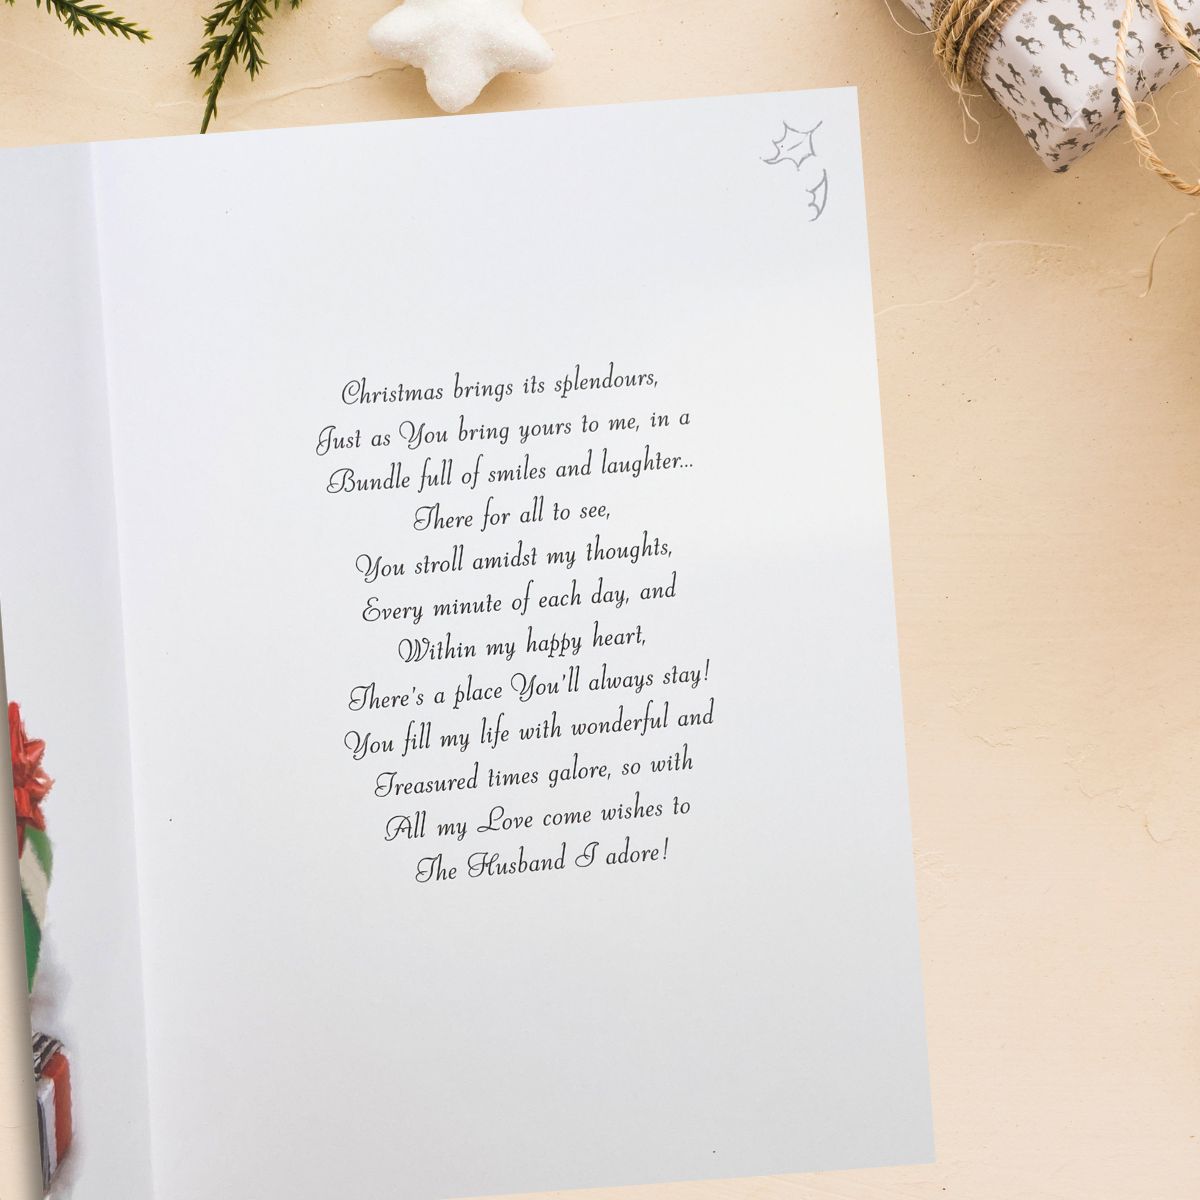 Christmas brings its splendours,
Just as You bring yours to me, in a
Bundle full of smiles and laughter...
There for all to see,
You stroll amidst my thoughts,
Every minute of each day, and
Within my happy heart,
There's a place You'll always stay!
You fill my life with wonderful and
Treasured times galore, so with
All my Love come wishes to
The Husband I adore!